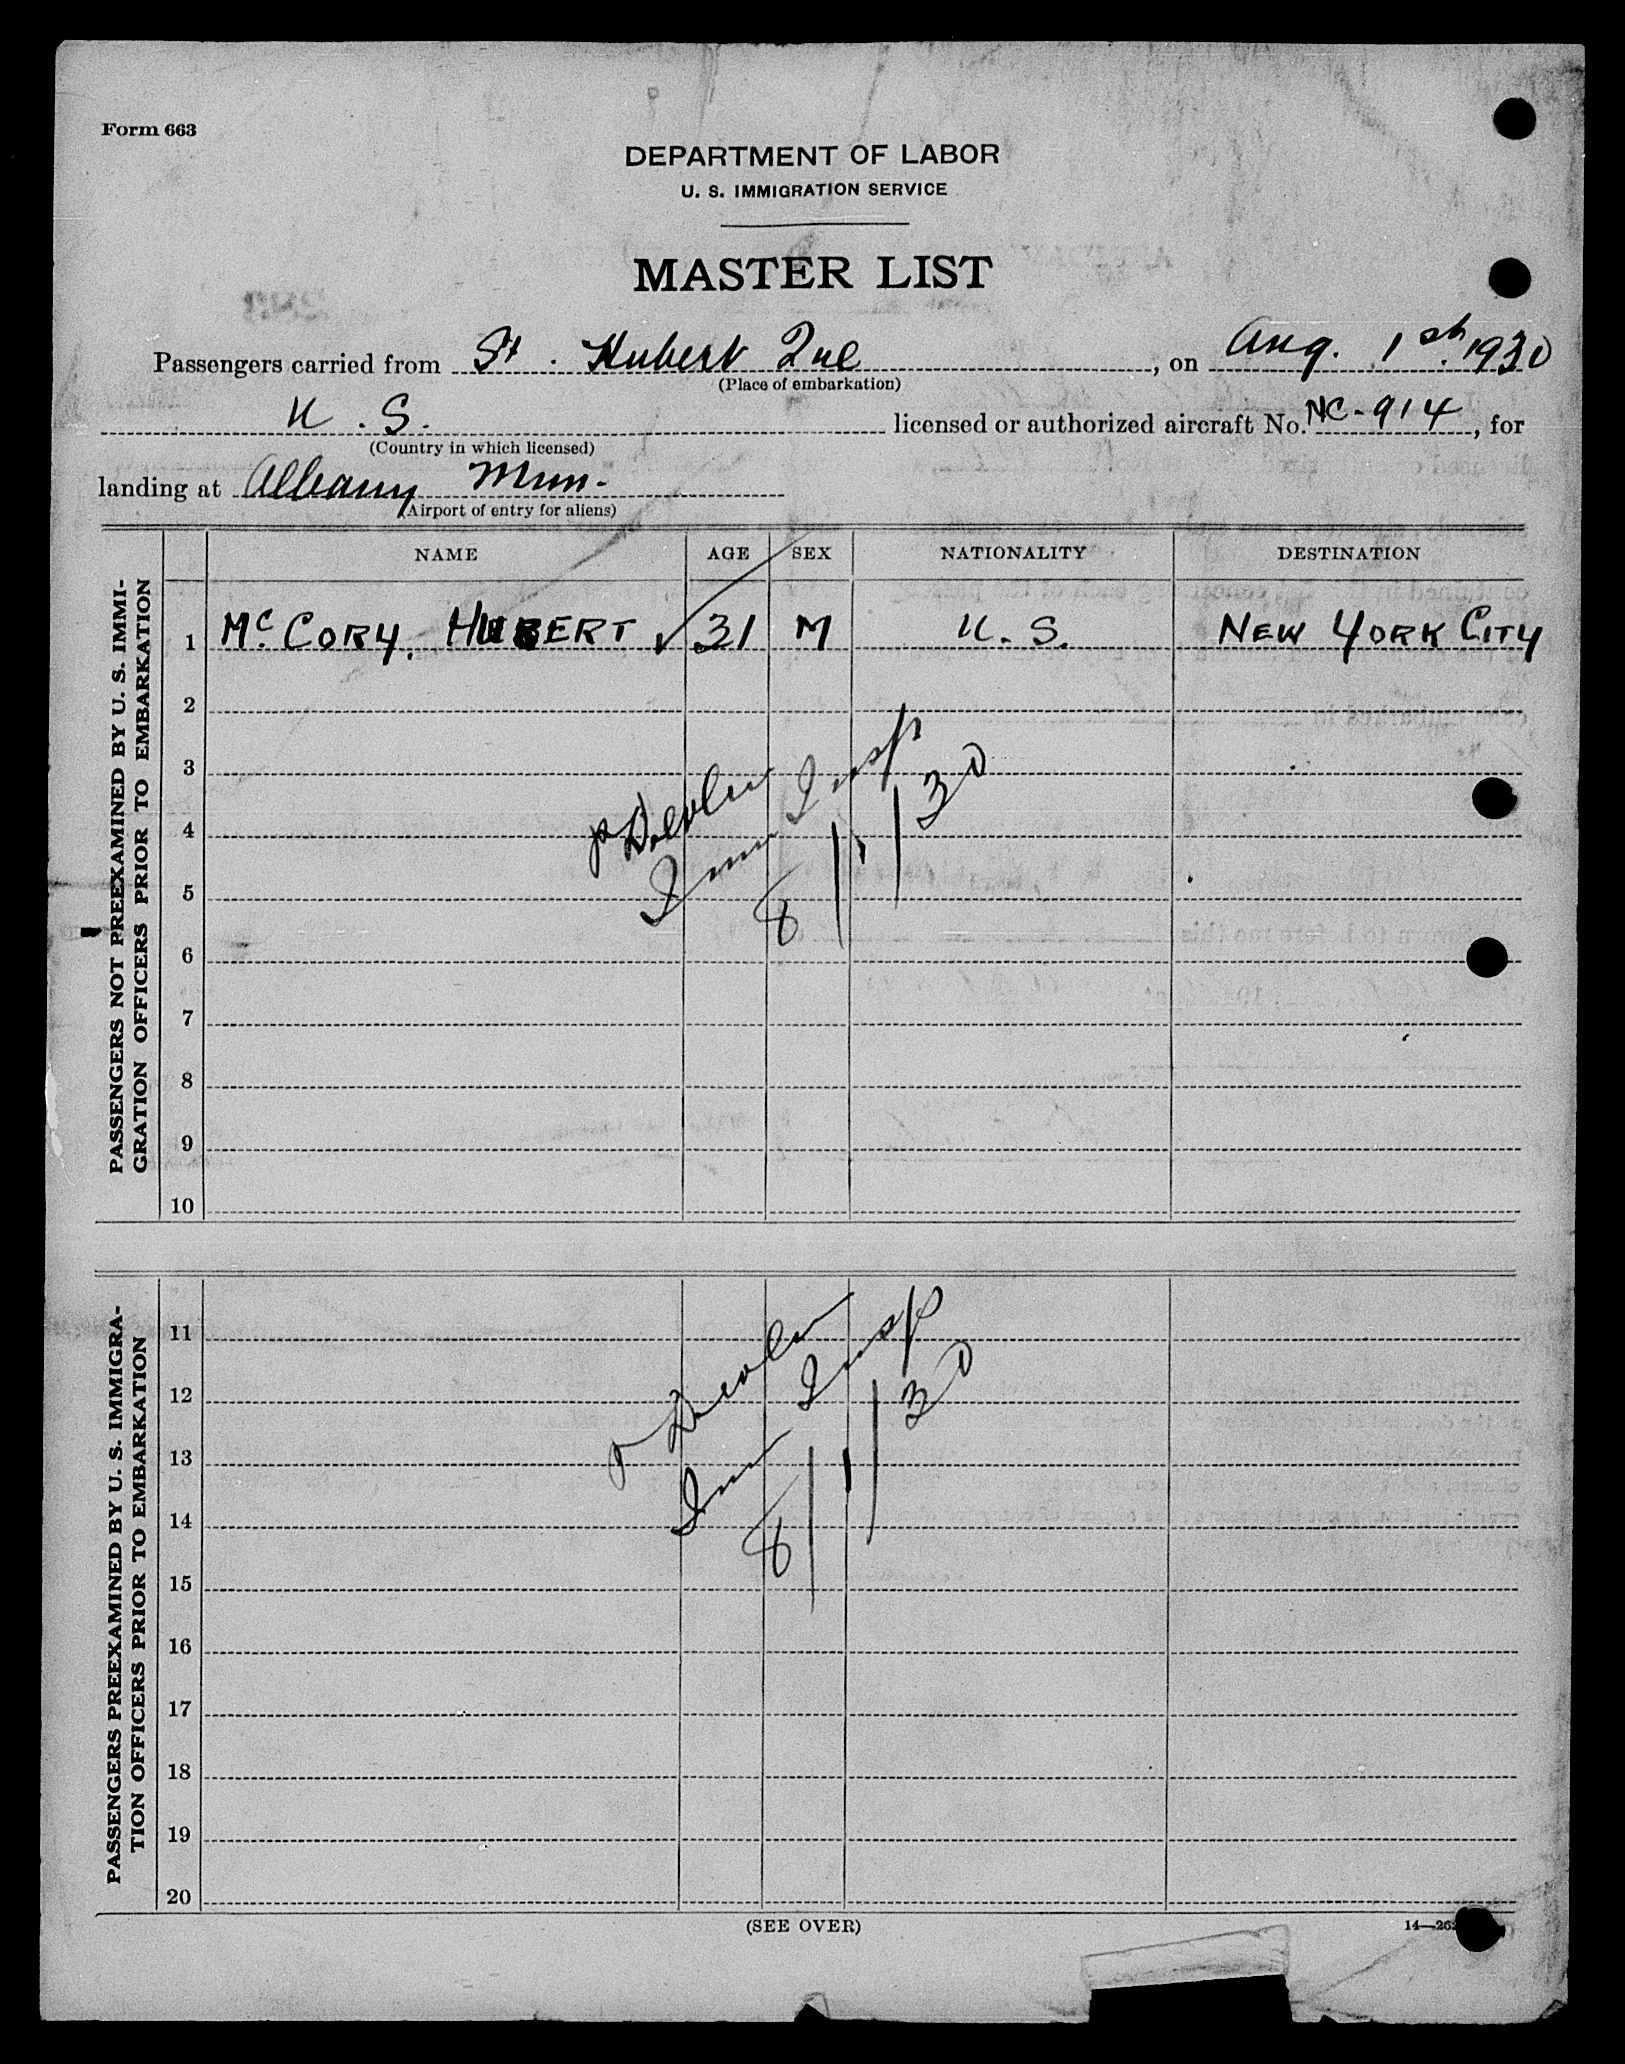 Form 663
DEPARTMENT OF LABOR
U. S. IMMIGRATION SERVICE
MASTER LIST
Passengers carried from St. Hubert Que, on Aug. 1st. 1930
(Place of embarkation)
U. S. licensed or authorized aircraft No. NC-914, for
(Country in which licensed)
landing at Albany Mun.
(Airport of entry for aliens)
NAME AGE SEX NATIONALITY DESTINATION
PASSENGERS NOT PREEXAMINED BY U. S. IMMI-
GRATION OFFICERS PRIOR TO EMBARKATION
1 McCORY, HUBERT 31 M U. S. NEW YORK CITY
2
3
4
5
6
7
8
9
10
Devlin
Imm Insp
8/1/30
PASSENGERS PREEXAMINED BY U. S. IMMIGRA-
TION OFFICERS PRIOR TO EMBARKATION
11
12
13
14
15
16
17
18
19
20
Devlin
Imm Insp
8/1/30
(SEE OVER)